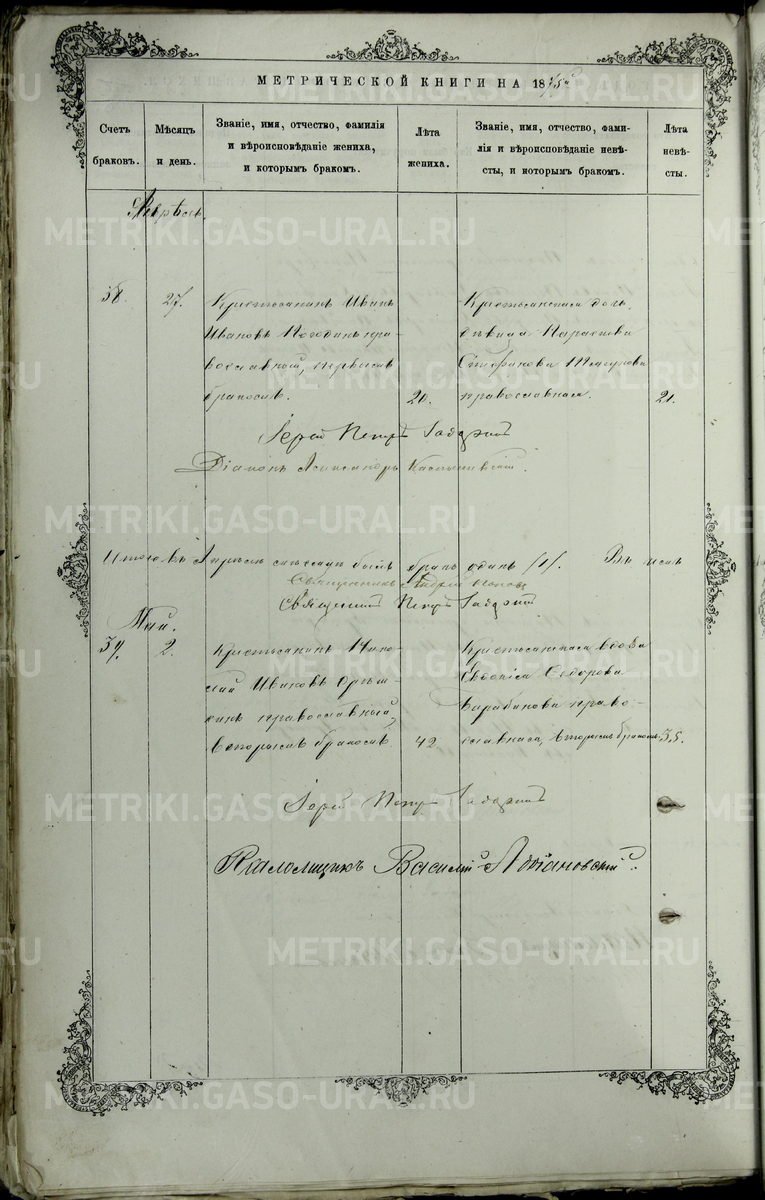 МЕТРИЧЕСКОЙ КНИГИ НА 18
Счетъ браковъ.
Мѣсяцъ и день.
Званіе, имя, отчество, фамилія и вѣроисповѣданіе жениха, и которымъ бракомъ.
Лѣта жениха.
Званіе, имя, отчество, фамилія и вѣроисповѣданіе невѣсты, и которымъ бракомъ.
Лѣта невѣсты.
Апрѣль.
38. 27.
Крестьянинъ Иванъ
Ивановъ Погодинъ пра-
вославный, первымъ
бракомъ. 20.
Крестьянская дочь
дѣвица Параскева
Стефанова
православная. 21.
Іерей Петръ
Діаконъ Александръ
Итого въ Апрѣлѣ мѣсяцѣ былъ бракъ одинъ /1/.
Священникъ
Священникъ Петръ
Май.
39. 2.
Крестьянинъ Нико-
лай Ивановъ
православный,
вторымъ бракомъ 42
Крестьянская вдова
Евгенія Ѳедорова
Барабанова право-
славная, вторымъ бракомъ. 35.
Іерей Петръ
Псаломщикъ Василій
METRIKI.GASO-URAL.RU